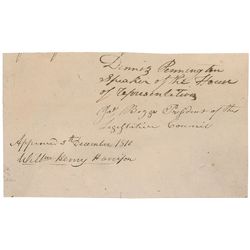 Dennis Pennington
Speaker of the House
of representatives
Jas Beggs President of the
Legislative Council
Approved 5th December 1810
Willm Henry Harrison